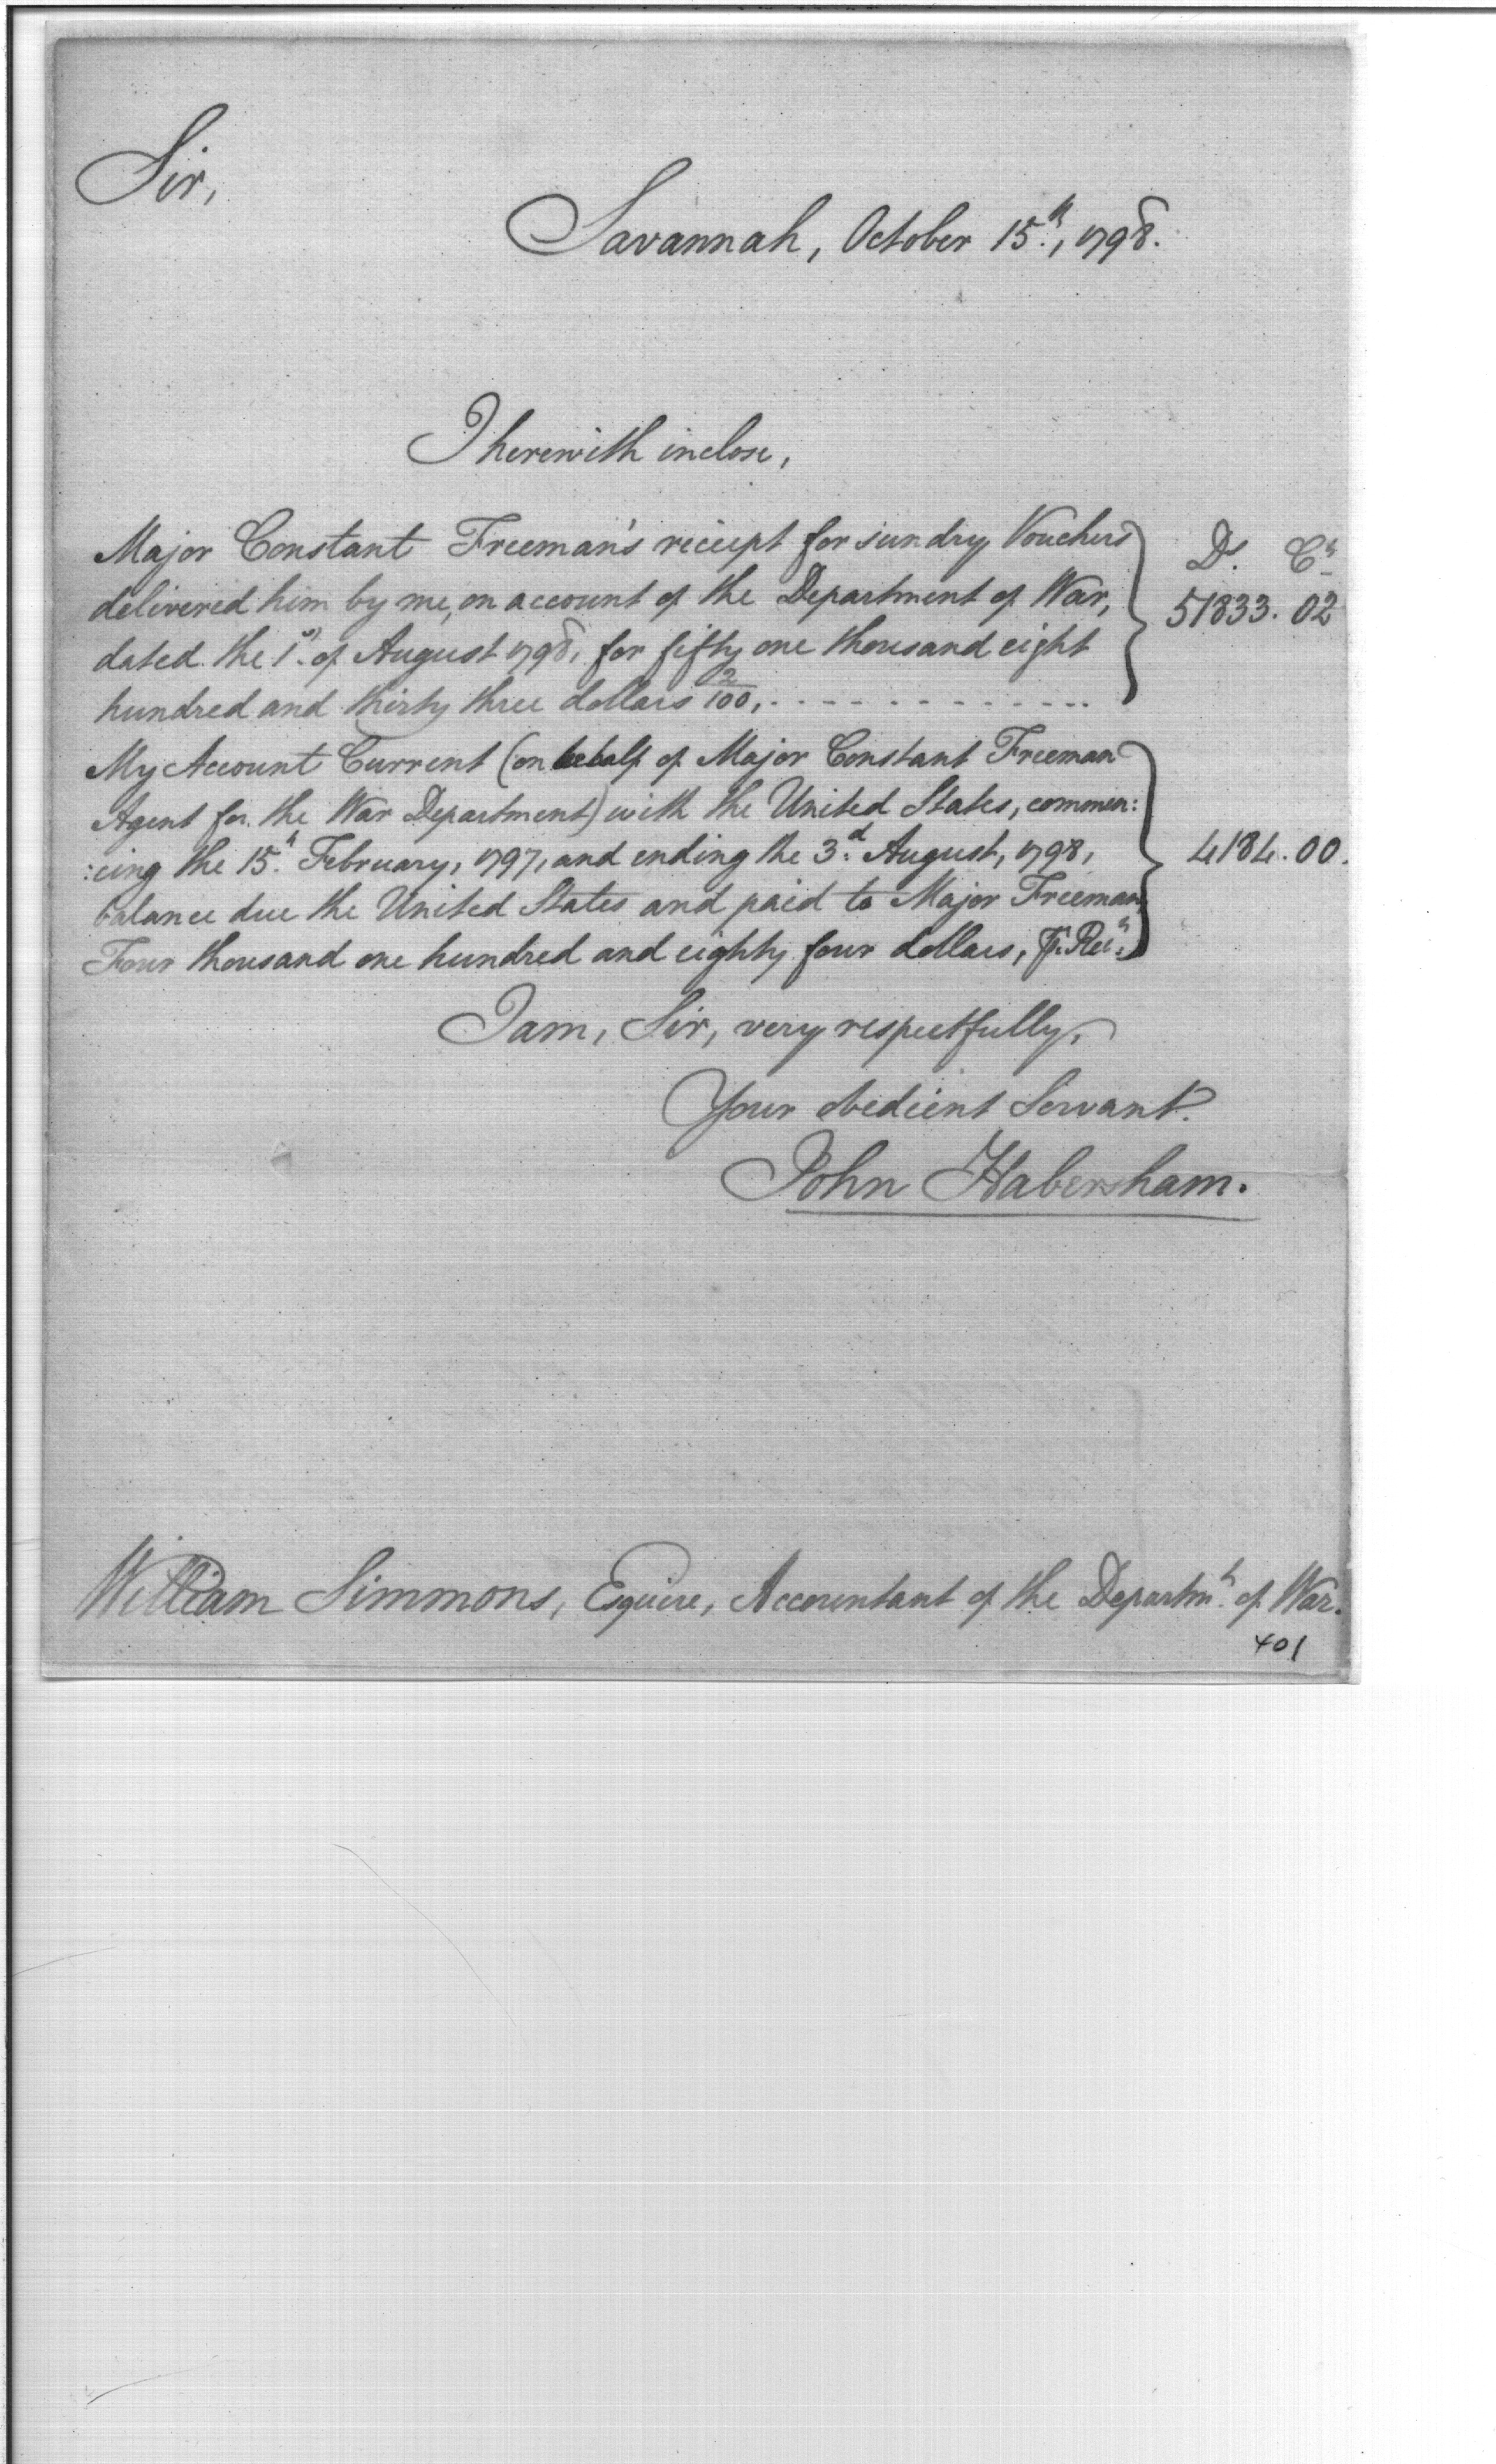 Sir,
Savannah, October 15th, 1798.
I herewith inclose,
Major Constant Freeman's receipt for sundry Vouchers
delivered him by me, on account of the Department of War,
dated the 1st of August 1798, for fifty one thousand eight
hundred and thirty three dollars 2/100,. - - - - - - - - - - -
Ds. Cts
51833. 02
My Account Current (on behalf of Major Constant Freeman
Agent for the War Department) with the United States, commen:
:cing the 15th February, 1797, and ending the 3d August, 1798,
balance due the United States and paid to Major Freeman
Four thousand one hundred and eighty four dollars,
4184. 00.
I am, Sir, very respectfully,
Your obedient Servant.
John Habersham.
William Simmons, Esquire, Accountant of the Departmt of War.
401